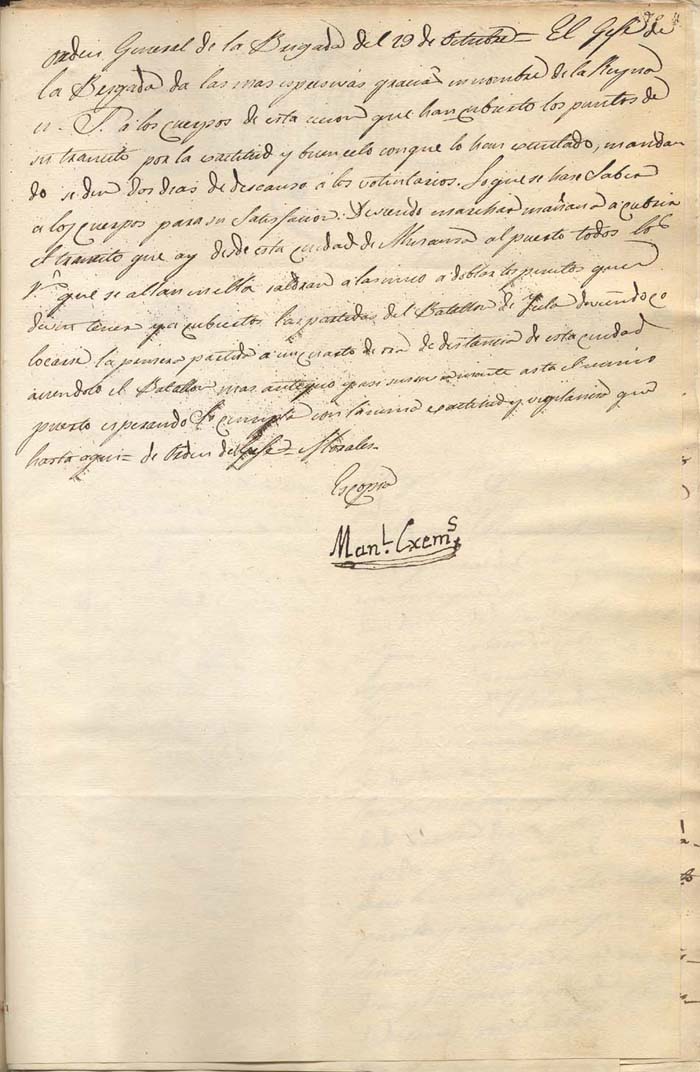 Orden General de la Brigada del 19 de Octubre = El Gefe de
la Brigada da las mas expresivas gracias en nombre de la Reyna
N. S. á los cuerpos de esta que han cubierto los puntos de
su transito por la exactitud y buen celo con que lo han executado, mandan
do se den dos dias de descanso á los voluntarios. Lo que se hase saber
a los cuerpos para su satisfacion. Deviendo marchar mañana a cubrir
el transito que ay desde esta ciudad de al puerto todos los
que se allan en ella saldran a las cinco a doblar los puntos que
deven tener ya cubiertos las partidas del Batallon de deviendo co
locarse la primera partida a un cuarto de ora de distancia de esta ciudad
el Batallon mas antiguo y asi asta el mismo
puerto esperando se cumpla con la misma exactitud y vigilancia que
hasta aqui = de Orden del Gefe = Morales
Es copia
Man.l Cxem.s